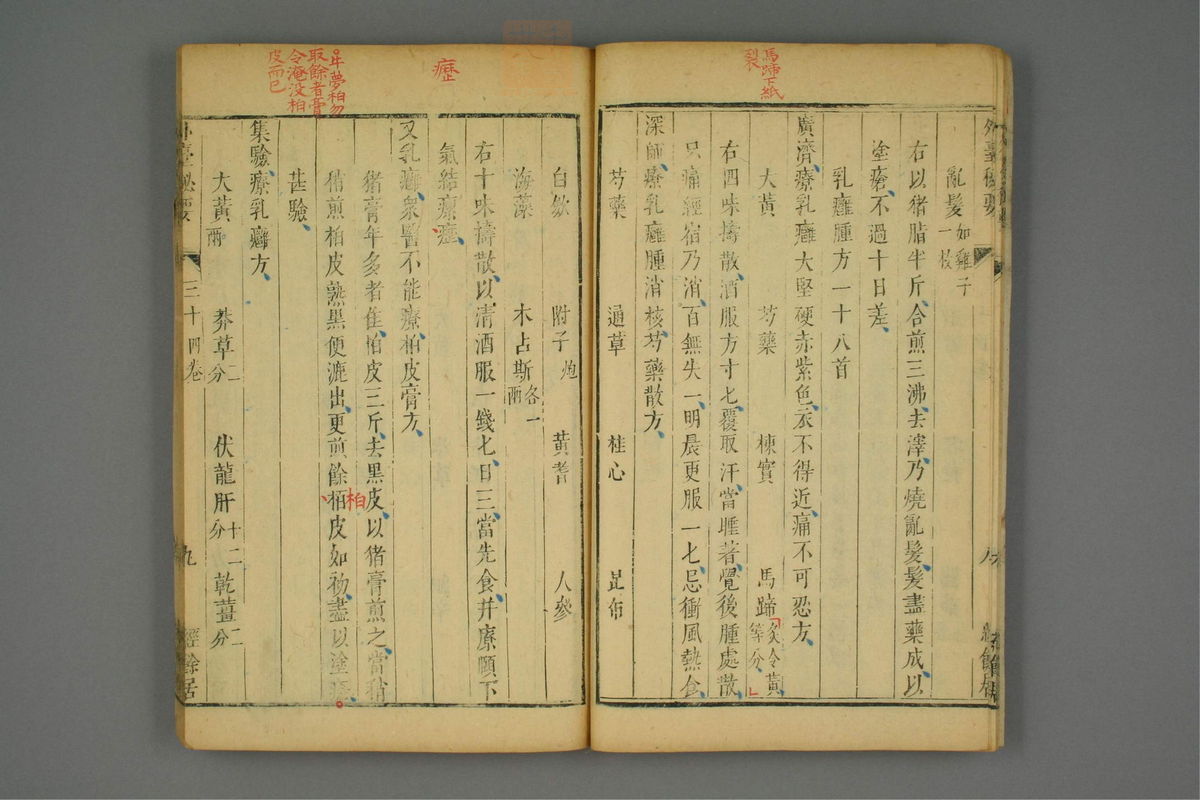 馬蹄下紙
裂
外臺秘要
亂髮如雞子一枚
右以猪脂半斤合煎三沸去滓乃燒亂髮髮盡藥成以
塗瘡不過十日差
乳癰腫方一十八首
廣濟療乳癰大堅硬赤紫色衣不得近痛不可忍方
大黃 芍藥 楝實 馬蹄炙令黃等分
右四味擣散酒服方寸匕覆取汗當睡著覺後腫處散
只痛經宿乃消百無失一明晨更服一匕忌衝風熱食
深師療乳癰腫消核芍藥散方
芍藥 通草 桂心 昆布
白斂 附子炮 黃耆 人參
海藻 木占斯各一兩
右十味擣散以清酒服一錢匕日三當先食并療頤下
氣結瘰癧
又乳癰衆醫不能療柏皮膏方
猪膏年多者佳柏皮三斤去黑皮以猪膏煎之當稍
稍煎柏皮熟黑便漉出更煎餘栢皮如初盡以塗瘡
甚驗
集驗療乳癰方
大黃兩 莽草二分 伏龍肝十二分 乾薑二分
外臺秘要
三十四卷
九
經餘居
癧
取餘者膏
令淹没柏
皮而已
柏